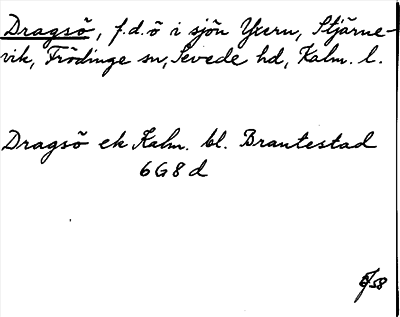 Dragsö, f.d. ö i sjön Yxern, Stjärne-
vik, Frödinge sn, Sevede hd, Kalm. l.
Dragsö ek Kalm. bl. Brantestad
6G8d